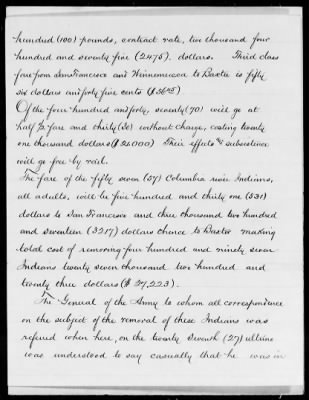 hundred (100) pounds, contract rate, two thousand four
hundred and seventy five (2475). dollars. Third class
fare from San Francisco and Winnemucca to Baxter is fifty
six dollars and forty five cents ($56 45).
Of the four hundred and forty, seventy (70) will go at
half fare and thirty (30) without charge, costing twenty
one thousand dollars ($21000) Their effects & subsistence
will go free by rail.
The fare of the fifty seven (57) Columbia river Indians,
all adults, will be five hundred and thirty one (531)
dollars to San Francisco and three thousand two hundred
and seventeen (3217) dollars thence to Baxter making
total cost of removing four hundred and ninety seven
Indians twenty seven thousand two hundred and
twenty three dollars ($27,223).
The General of the Army to whom all correspondence
on the subject of the removal of these Indians was
referred when here, on the twenty seventh (27) ultimo
was understood to say casually that he was in